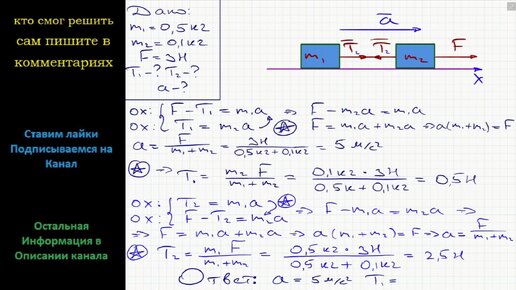 кто смог решить
сам пишите в
комментариях
Ставим лайки
Подписываемся на
Канал
Остальная
Информация в
Описании канала
Дано:
m₁ = 0,5 кг
m₂ = 0,1 кг
F = 3Н
T₁ - ? T₂ - ?
a - ?
a
m₁ T₁ T₂ m₂ F
x
ox: { F - T₁ = m₁a ⇒ F - m₂a = m₁a
ox: { T₁ = m₂a F = m₁a + m₂a ⇒ a(m₁+m₂) = F
a = F/(m₁+m₂) = 3Н/(0,5кг + 0,1кг) = 5 м/с²
⇒ T₁ = m₂F/(m₁+m₂) = 0,1кг · 3Н/(0,5кг + 0,1кг) = 0,5Н
ox: { T₂ = m₁a
ox: { F - T₂ = m₂a ⇒ F - m₁a = m₂a ⇒
⇒ F = m₁a + m₂a ⇒ a(m₁+m₂) = F ⇒ a = F/(m₁+m₂)
T₂ = m₁F/(m₁+m₂) = 0,5кг · 3Н/(0,5кг + 0,1кг) = 2,5Н
Ответ: a = 5 м/с² T₁ =